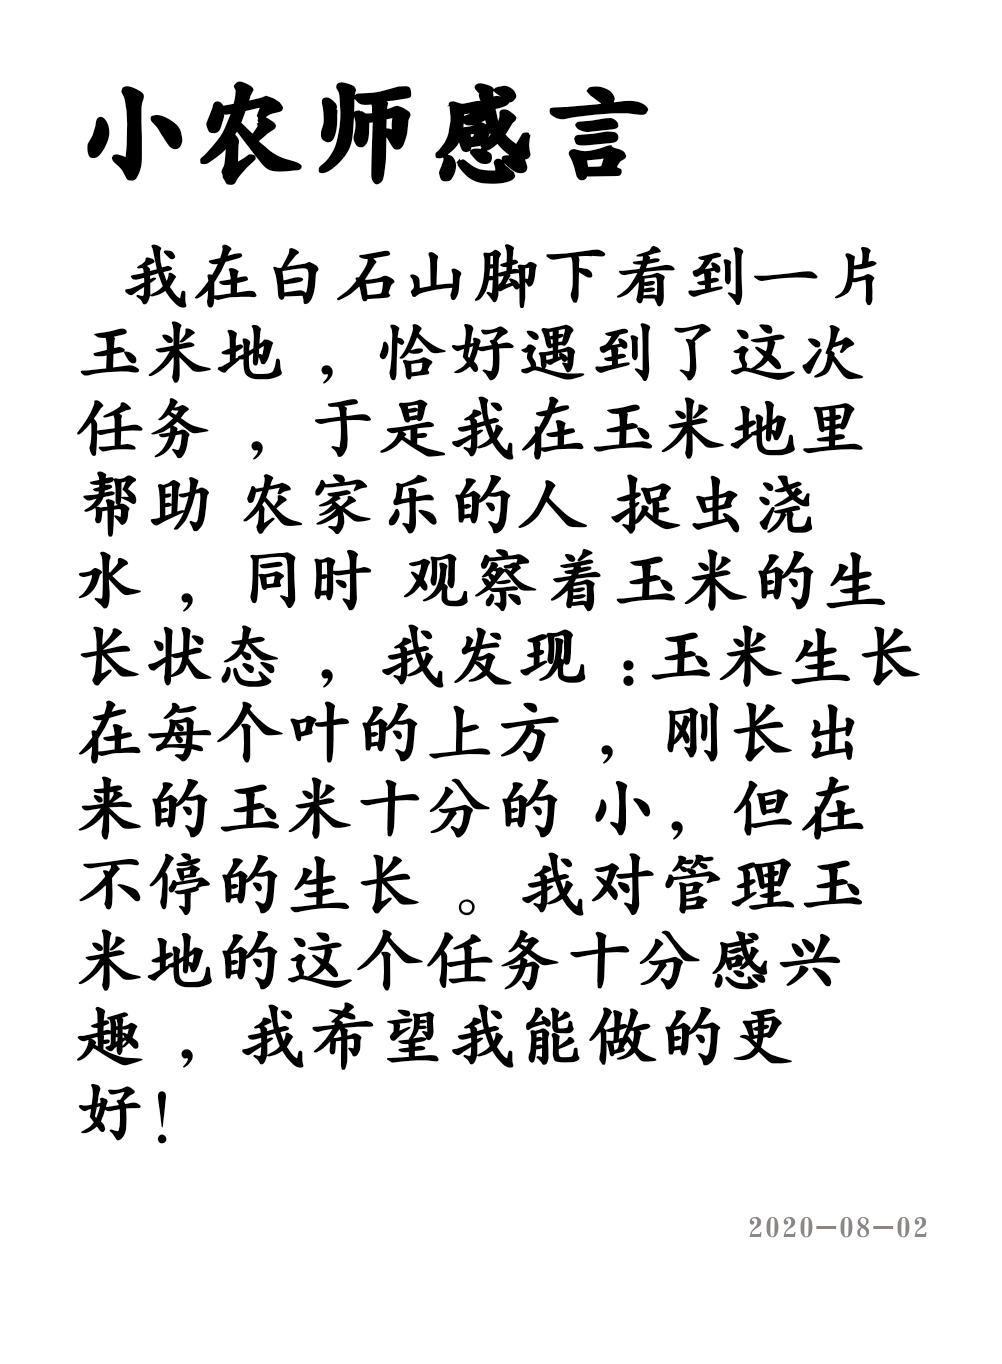 小农师感言
我在白石山脚下看到一片
玉米地 ，恰好遇到了这次
任务 ，于是我在玉米地里
帮助 农家乐的人 捉虫浇
水 ， 同时 观察着玉米的生
长状态 ，我发现 ：玉米生长
在每个叶的上方 ，刚长出
来的玉米十分的 小，但在
不停的生长 。我对管理玉
米地的这个任务十分感兴
趣 ，我希望我能做的更
好！
2020-08-02